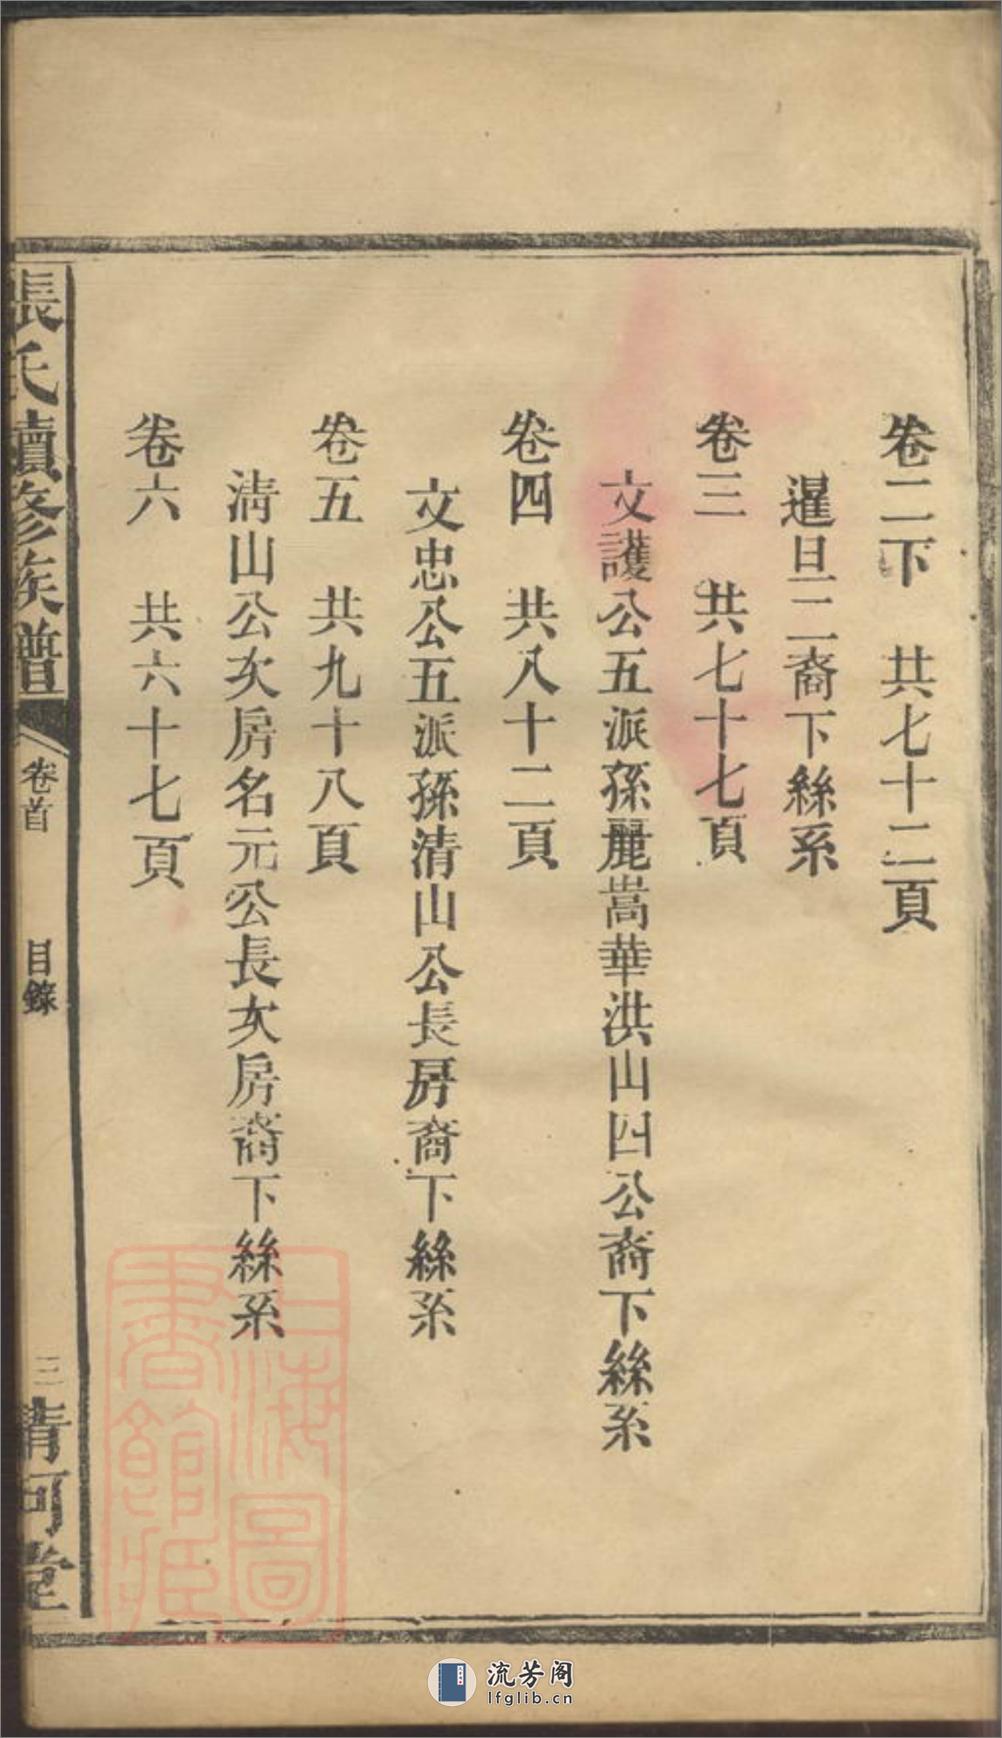 卷二下　共七十二頁
暹旦二裔下絲系
卷三　共七十七頁
文護公五派孫麗嵩華洪山四公裔下絲系
卷四　共八十二頁
文忠公五派孫清山公長房裔下絲系
卷五　共九十八頁
清山公次房名元公長次房裔下絲系
卷六　共六十七頁
張氏續修族譜　卷首　目錄　三　清河堂
上海圖書館藏
流芳阁
lfglib.cn